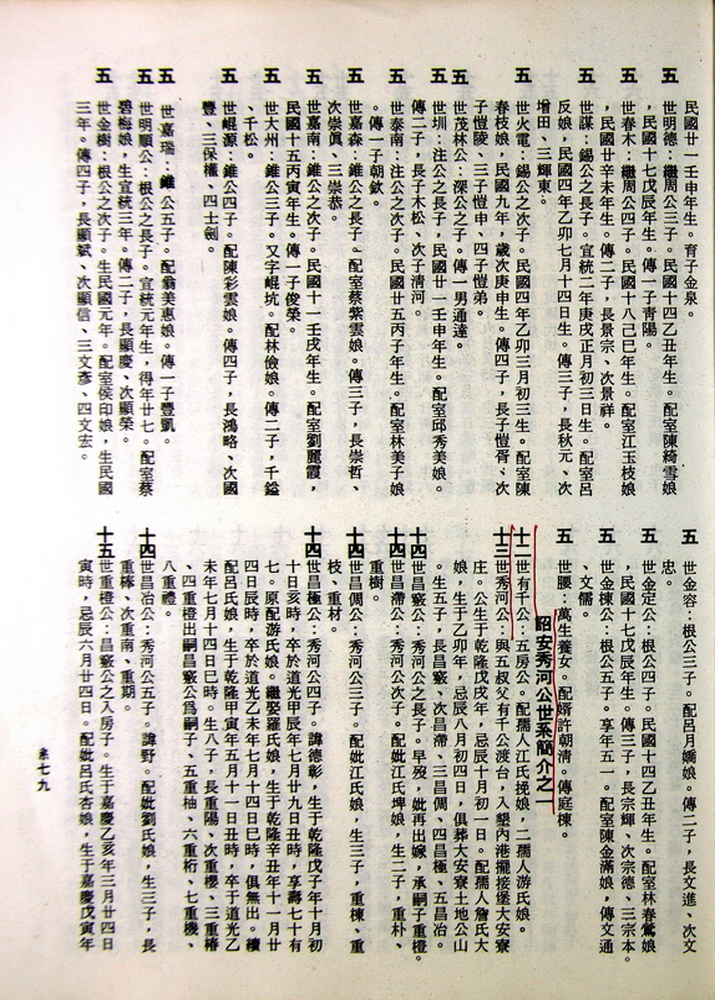 民國廿一壬申年生。育子金泉。
五世明德：繼周公三子。民國十四乙丑年生。配室陳綺雪娘
，民國十七戊辰年生。傳一子青陽。
五世春木：繼周公四子。民國十八己巳年生。配室江玉枝娘
，民國廿辛未年生。傳二子，長景宗、次景祥。
五世謀：錫公之長子。宣統二年庚戌正月初三日生。配室呂
反娘，民國四年乙卯七月十四日生。傳三子，長秋元、次
增田、三輝東。
五世火電：錫公之次子。民國四年乙卯三月初三生。配室陳
春枝娘，民國九年，歲次庚申生。傳四子，長子愷胥、次
子愷陵、三子愷申、四子愷弟。
五世茂林公：深公之子。傳一男通達。
五世圳：注公之長子，民國廿一壬申年生。配室邱秀美娘。
傳二子，長子木松、次子清河。
五世泰南：注公之次子。民國廿五丙子年生。配室林美子娘
。傳一子朝欽。
五世嘉森：錐公之長子。配室蔡紫雲娘。傳三子，長崇哲、
次崇眞、三崇恭。
五世嘉南：錐公之次子。民國十一壬戌年生。配室劉麗霞，
民國十五丙寅年生。傳一子俊榮。
五世大州：錐公三子。又字崐坑。配林儉娘。傳二子，千鎰
、千松。
五世崐源：錐公四子。配陳彩雲娘。傳四子，長鴻略、次國
豐、三保權、四士劍。
五世嘉瑞：錐公五子。配翁美惠娘。傳一子豐凱。
五世明順公：根公之長子。宣統元年生，得年廿七。配室蔡
碧梅娘，生宣統三年。傳二子，長顯慶、次顯榮。
五世金樹：根公之次子。生民國元年。配室侯印娘，生民國
三年。傳四子，長顯斌、次顯信、三文彥、四文宏。
五世金容：根公三子。配呂月嬌娘。傳二子，長文進、次文
忠。
五世金定公：根公四子。民國十四乙丑年生。配室林春鶯娘
，民國十七戊辰年生。傳三子，長宗輝、次宗德、三宗本。
五世金棟公：根公五子。享年五一。配室陳金滿娘，傳文通
、文儒。
五世腰：萬生養女。配婿許朝清。傳庭棟。
詔安秀河公世系簡介之一
十二世有千公：五房公。配孺人江氏挽娘，二孺人游氏娘。
十三世秀河公：與五叔父有千公渡台，入墾內港擺接堡大安寮
庄。公生于乾隆戊戌年，忌辰十月初一日。配孺人詹氏大
娘，生于乙卯年，忌辰八月初四日，俱葬大安寮土地公山
。生五子，長昌竅、次昌滯、三昌倜、四昌極、五昌冶。
十四世昌竅公：秀河公之長子。早歿，妣再出嫁，承嗣子重橙。
十四世昌滯公：秀河公次子。配妣江氏埤娘，生二子，重朴、
重樹。
十四世昌倜公：秀河公三子。配妣江氏娘，生三子，重棟、重
枝、重材。
十四世昌極公：秀河公四子。諱德彰，生于乾隆戊子年十月初
十日亥時，卒於道光甲辰年七月廿九日丑時，享壽七十有
七。原配游氏娘。繼娶羅氏娘，生于乾隆辛丑年十一月廿
四日辰時，卒於道光乙未年七月十四日巳時，俱無出。續
配呂氏娘，生于乾隆甲寅年五月十一日丑時，卒于道光乙
未年七月十四日巳時。生八子，長重陽、次重櫻、三重椿
、四重橙出嗣昌竅公爲嗣子、五重柚、六重桁、七重機、
八重禮。
十四世昌冶公：秀河公五子。諱野。配妣劉氏娘，生三子，長
重榛、次重南、重期。
十五世重橙公：昌竅公之入房子。生于嘉慶乙亥年三月廿四日
寅時，忌辰六月廿四日。配妣呂氏杏娘，生于嘉慶戊寅年
系七九